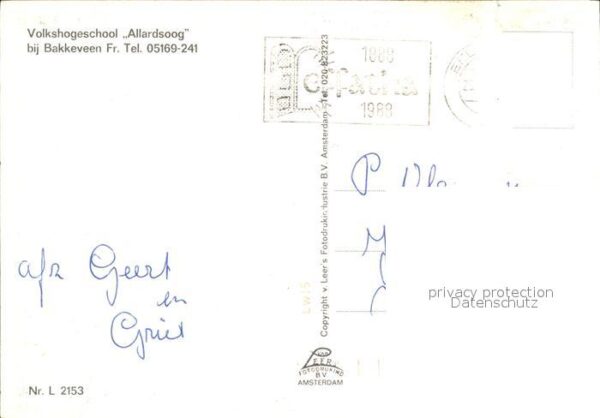 Volkshogeschool „Allardsoog"
bij Bakkeveen Fr. Tel. 05169-241
1888
1988
Copyright v. Leer's Fotodrukindustrie B.V. Amsterdam - Tel. 020-823223
P
afz Geert
en
Griet
privacy protection
Datenschutz
VAN
LEER
FOTODRUKIND
B.V.
AMSTERDAM
Nr. L 2153